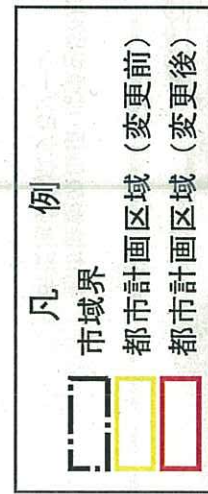 凡例
市域界
都市計画区域（変更前）
都市計画区域（変更後）